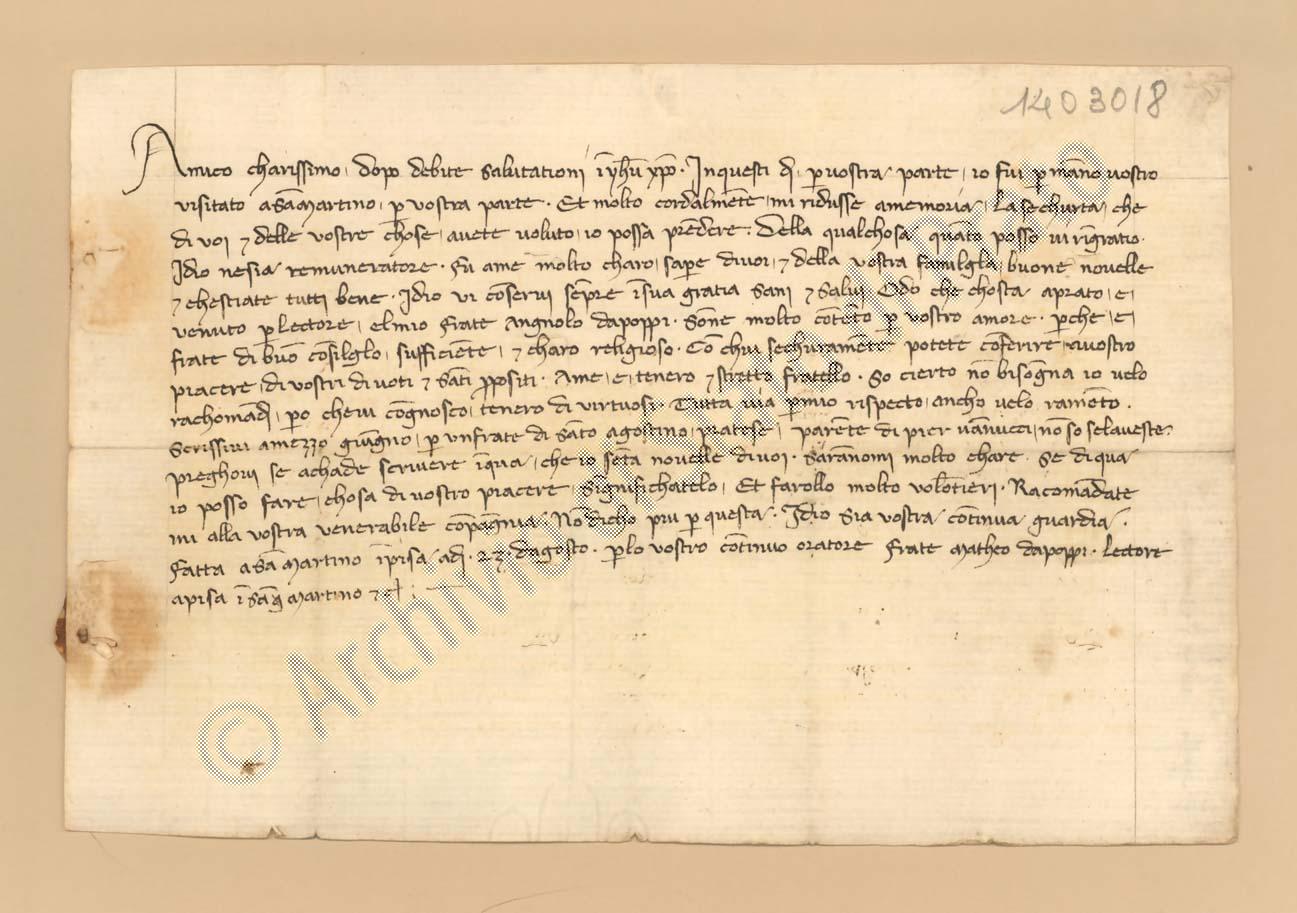 1403018
Amico charissimo, dopo debite salutationi ī yhū xp̄o. In questi dì, p vostra parte, io fui p mano vostro
visitato a Sā Martino, p vostra parte. Et molto cordalmēte, mi ridusse a memoria, la sechurtà, che
di voi ⁊ delle vostre chose, avete voluto, io possa prēdere. Della qualchosa quāto posso vi rīgratio.
Idio ne sia remuneratore. Fu a me molto charo, sape di voi, ⁊ della vostra familgla, buone novelle
⁊ che state tutti bene. Idio vi cōservi sēpre ī sua gratia sani ⁊ salvi. Odo che chostà a prato, e
venuto p lectore, el mio frate Angnolo da poppi. Sōne molto cōtēto p vostro amore. pche, e
frate di buō cōsilglo, sufficiēte, ⁊ charo religioso. Cō chui sechuramēte potete cōferire, a vostro
piacere, di vostri divoti ⁊ sāti p̄positi. A me, e, tenero ⁊ stretto fratello. So cierto nō bisogna io velo
rachomādi, po che vi cōgnosco, tenero di virtuosi. Tutta via p mio rispecto, ancho velo ramēto.
Scrissivi a mezzo giugno, p un frate di sāto agostino, pratese, parēte di pier vānucci, no so se l'aveste.
preghovi se achade scrivere ī qua, che io sēta novelle di voi. Sarānomi molto chare. Se di qua
io posso fare, chosa di vostro piacere, significhatelo, Et farollo molto volōtieri. Racomādate
mi alla vostra venerabile cōpāgnia. Nō dicho piu p questa. Idio sia vostra cōtinua guardia.
Fatta a Sā Martino ī pisa, adì. 23. d'agosto. plo vostro cōtinuo oratore frate Matheo da poppi. lectore
a pisa ī Sā Martino ⁊ c̄
© Archivio di Stato di Prato